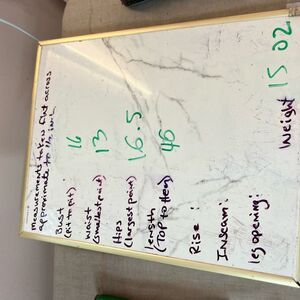 measurements taken flat across
approximate to 1/2 inch
Bust : 16
(pit to pit)
Waist 13
(smallest point)
Hips 16.5
(largest point)
Length 46
(TOP to Hem)
Rise :
Inseam :
leg opening :
Weight 15 oz